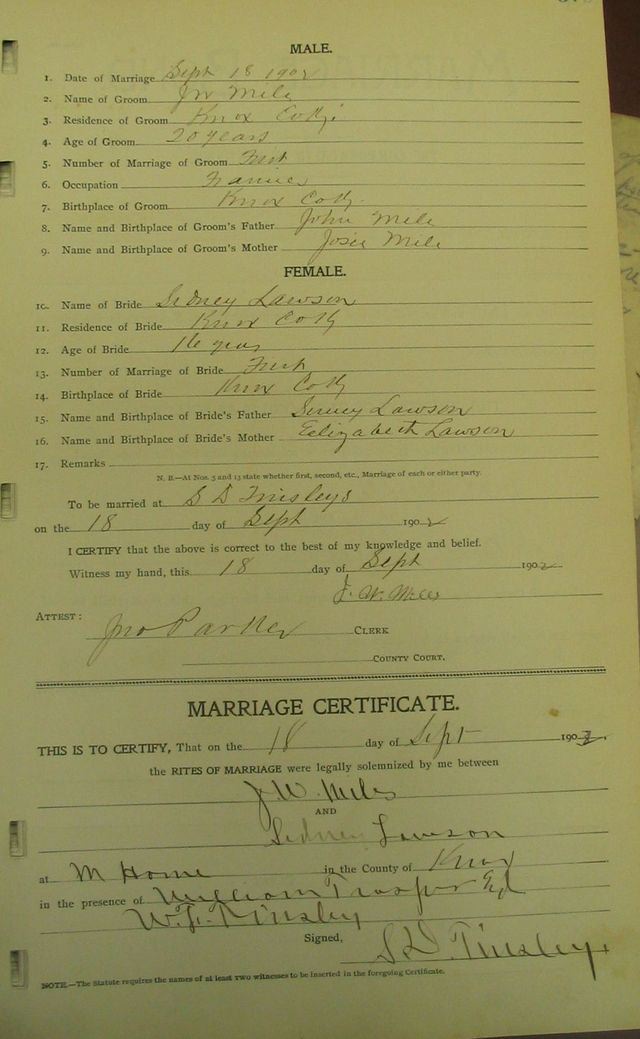 MALE.
1. Date of Marriage Sept 18 1902
2. Name of Groom JW Miles
3. Residence of Groom Knox Co Ky
4. Age of Groom 20 years
5. Number of Marriage of Groom First
6. Occupation Farmer
7. Birthplace of Groom Knox Co Ky
8. Name and Birthplace of Groom's Father John Mile
9. Name and Birthplace of Groom's Mother Josie Mile
FEMALE.
10. Name of Bride Sidney Lawson
11. Residence of Bride Knox Co Ky
12. Age of Bride 16 years
13. Number of Marriage of Bride First
14. Birthplace of Bride Knox Co Ky
15. Name and Birthplace of Bride's Father Lawson
16. Name and Birthplace of Bride's Mother Eelizabeth Lawson
17. Remarks
N. B.—At Nos. 5 and 13 state whether first, second, etc., Marriage of each or either party.
To be married at S D Tinsleys
on the 18 day of Sept 1902
I CERTIFY that the above is correct to the best of my knowledge and belief.
Witness my hand, this 18 day of Sept 1902
J. W. Miles
ATTEST: Jno Parker CLERK
COUNTY COURT.
MARRIAGE CERTIFICATE.
THIS IS TO CERTIFY, That on the 18 day of Sept 190
the RITES OF MARRIAGE were legally solemnized by me between
J. W. Miles
AND
Sidney Lawson
at M Home in the County of Knox
in the presence of William Trosper
W. F. Tinsley
Signed,
S. D. Tinsley
NOTE.—The Statute requires the names of at least two witnesses to be inserted in the foregoing Certificate.